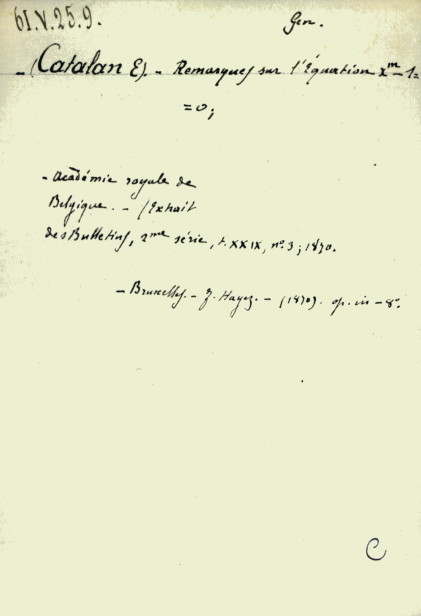 61.V.25.9.
Gen.
- (Catalan E). - Remarques sur l'Équation x^m - 1 =
= 0;
- Académie royale de
Belgique. - (Extrait
des Bulletins, 2me série, t. XXIX, no. 3; 1870.
- Bruxelles. - F. Hayez. - (1870). op. in - 8o.
C